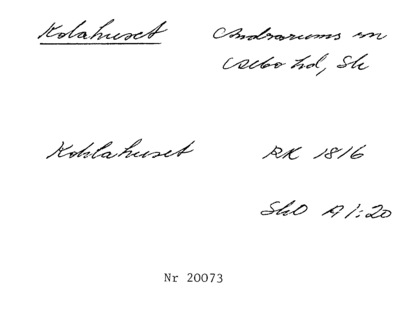 Kolahuset Andrarums sn
Albo hd, Sk
Kohlahuset RK 1816
SkO A1:20
Nr 20073